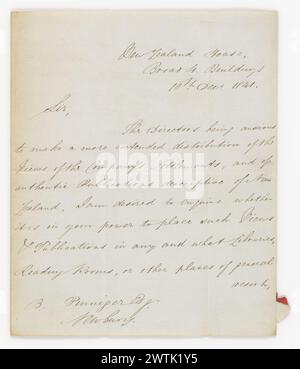 New Zealand House,
Broad St. Buildings
10th Decr 1841.
Sir,
The Directors being anxious
to make a more extended distribution of the
Views of the Company's Settlements, and of
authentic Publications descriptive of New
Zealand, I am desired to enquire whether
it is in your power to place such Views
& Publications in any and what Libraries,
Reading Rooms, or other places of general
resort,
B. Pinniger Esq.
Newbury.
alamy
Image ID: 2WTK1Y5
www.alamy.com